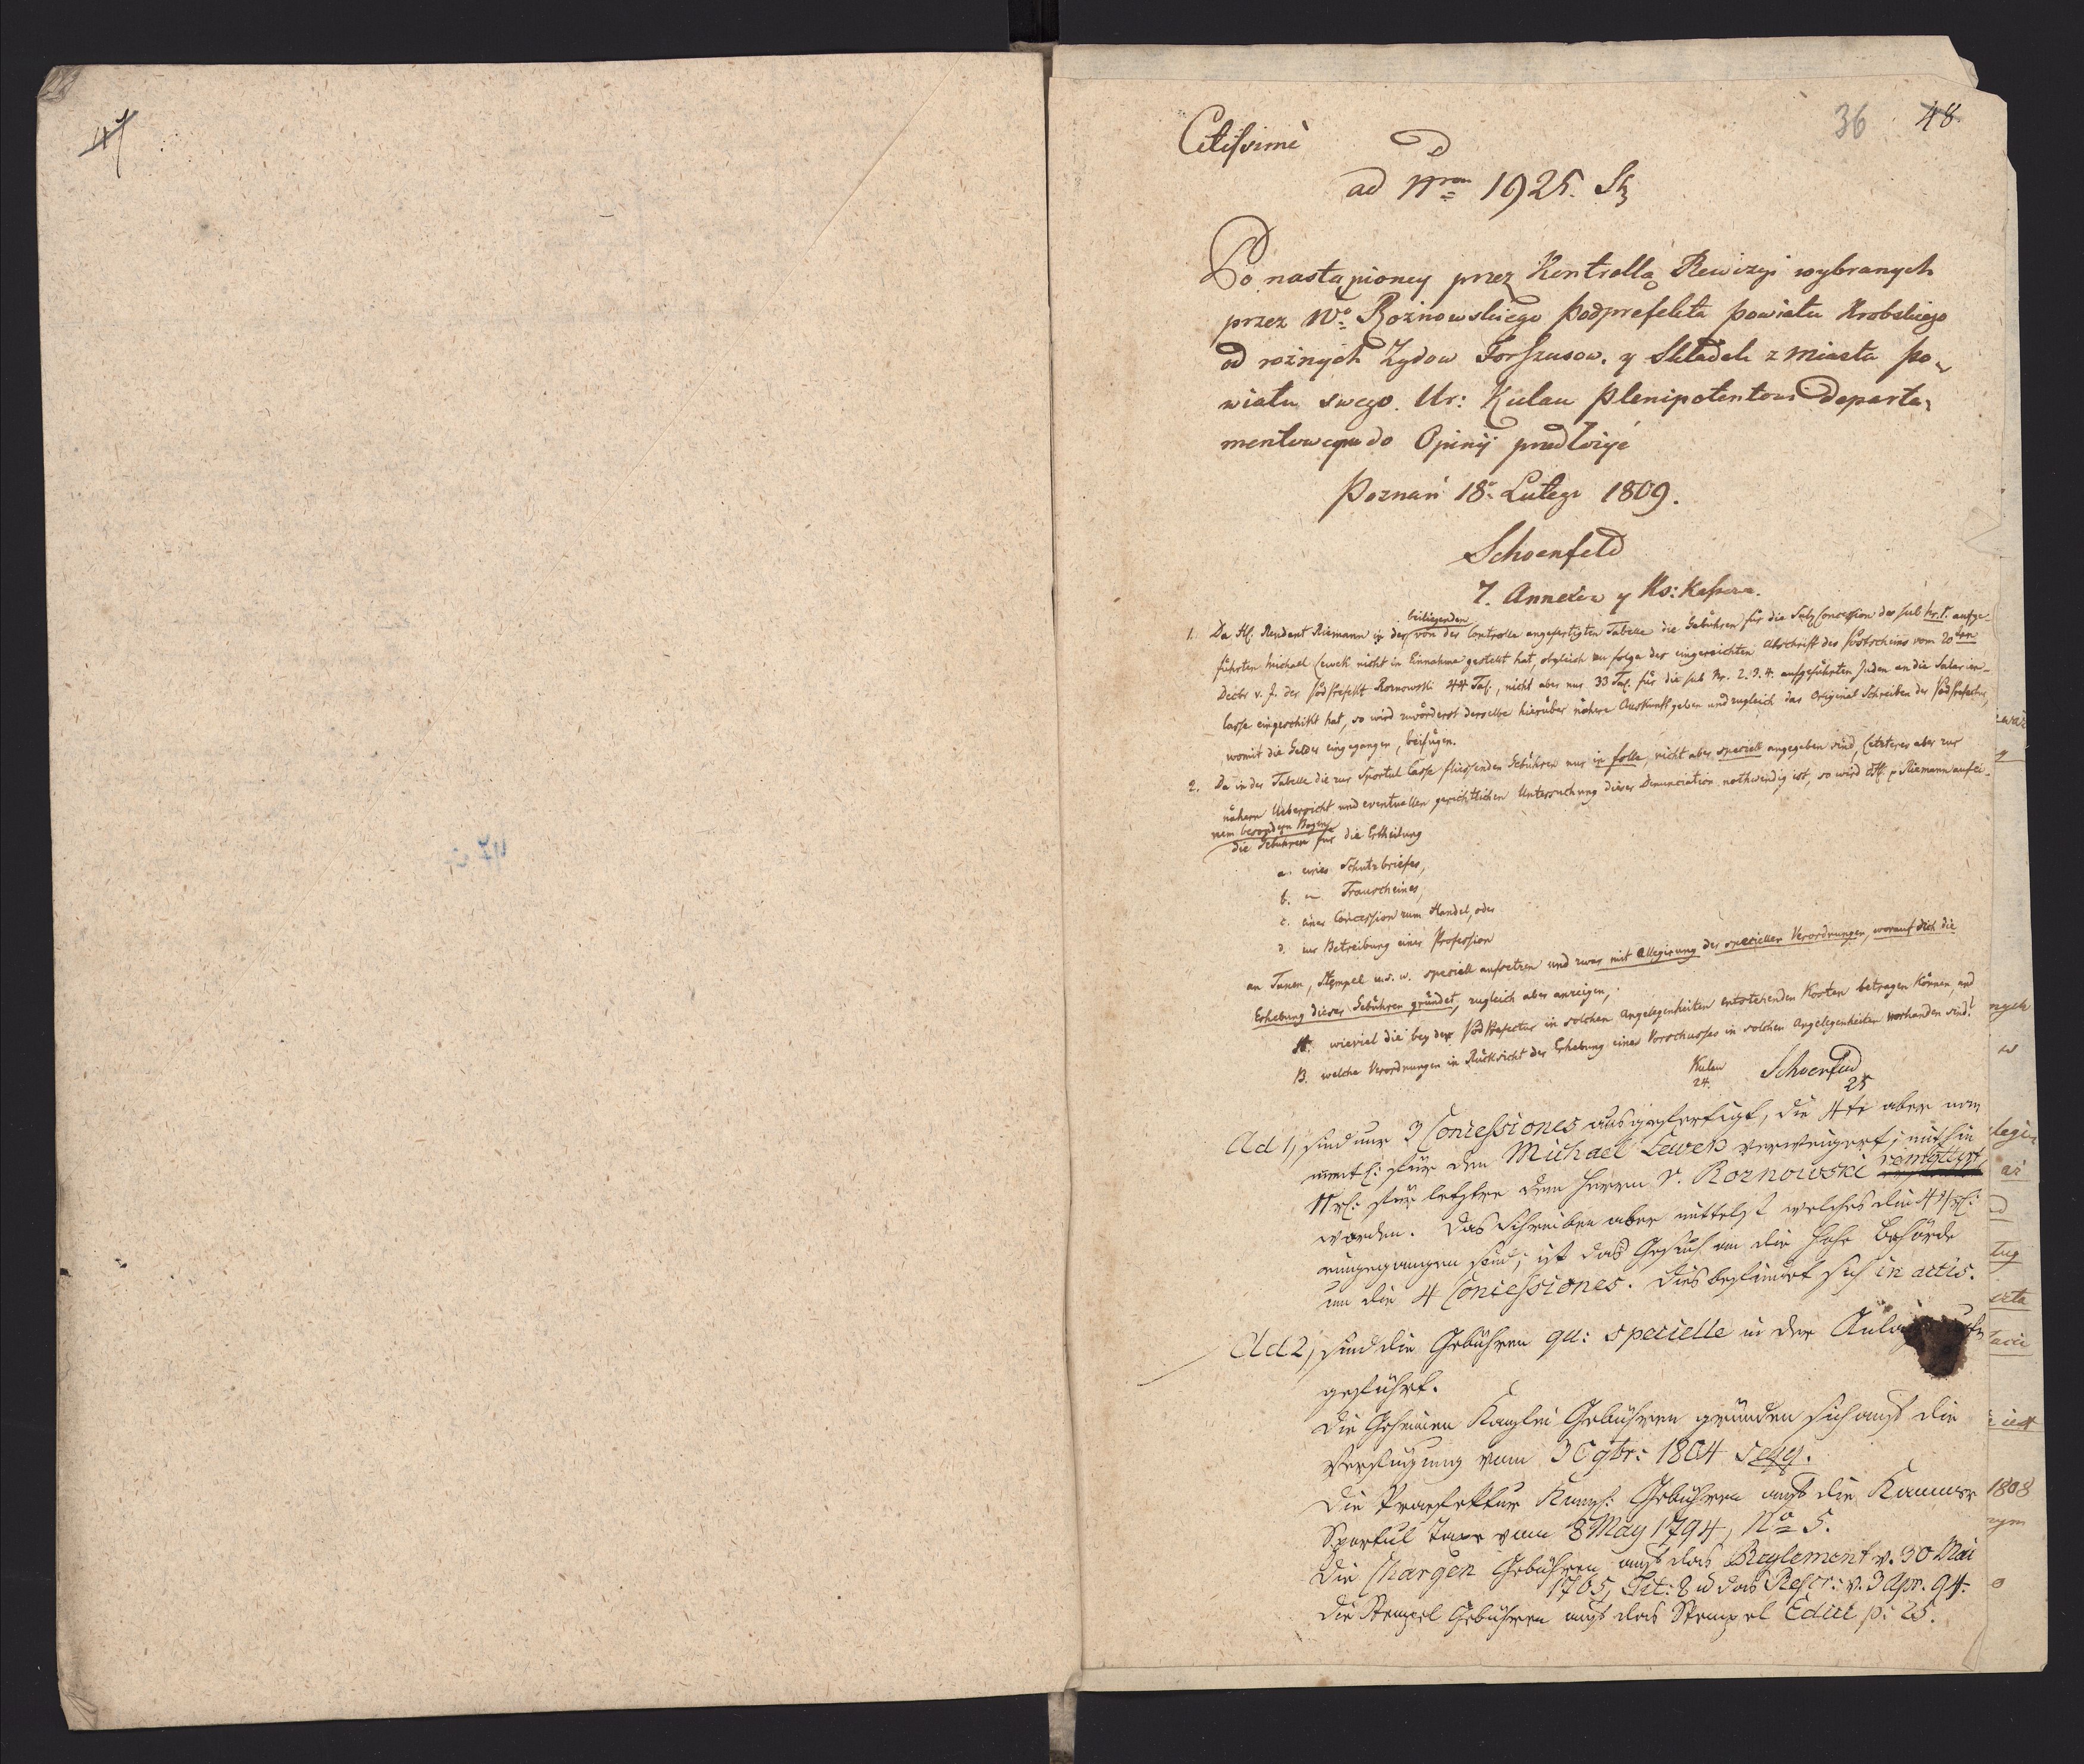 47
36 48
Citissime
ad Nrm 1925. Sk
Po nastąpioney przez Kontrollą Rewizyi wybranych
przez Wo Roznowskiego Podprefekta Powiatu Krobskiego
od rożnych Zydow Forszusow. y Składek z Miasta Po-
wiatu swego. Ur: Kulau Plenipotentowi Departa-
mentowemu do Opinij przedłożyć
Poznań 18o Lutego 1809.
Schoenfeld
7. Annexa y Ks: Kassera.
beiliegenden
1. Da H. Rendant Niemann in der von der Controlle angefertigten Tabelle die Gebühren für die Concession des sub Nr. 1. aufge-
führten Michael Lewek nicht in Einnahme gestellt hat, obgleich zu folge der eingereichten Abschrift des Postscheins vom 20ten
Decbr v. J. der PodPrefekt Roznowski 44 Tal., nicht aber nur 33 Tal. für die sub Nr. 2. 3. 4. aufgeführten Juden an die Salarien-
Casse eingeschikt hat, so wird zuvörderst derselbe hierüber nähere Auskunft geben und zugleich das Original Schreiben der PodPrefectur,
womit die Gelder eingegangen, beifügen.
2. Da in der Tabelle die zur Sportul Casse fliessenden Gebühren nur in folle, nicht aber speciell angegeben sind, letzteres aber zur
nähern Uebersicht und eventuellen gerichtlichen Untersuchung dieser Denunciation nothwendig ist, so wird H. p Niemann auf ei-
nem besondern Bogen
die Gebühren für die Ertheilung
a. eines Schutzbriefes,
b. — Trauscheines,
c. einer Concession zum Handel, oder
d. zur Betreibung einer Profession
an Taxen, Stempel u. s. w. speciell aufsetzen und zwar mit Allegirung der speciellen Verordnungen, worauf sich die
Erhebung dieser Gebühren gründet, zugleich aber anzeigen,
A. wieviel die bey der PodPrefectur in solchen Angelegenheiten entstehenden Kosten betragen können, und
B. welche Verordnungen in Rücksicht der Erhebung eines Vorschusses in solchen Angelegenheiten vorhanden sind!
Kulau Schoenfeld
24. 25
Ad 1, sind nur 3 Concessiones ausgefertigt, die 4te aber nom
für den Michael Lewek verweigert; mithin
11 rl: für letztre dem Herrn v. Roznowski
worden. Das Schreiben aber mittelst welches die 44 rl:
eingegangen sind, ist das Gesuch an die hohe Behörde
um die 4 Concessiones. Dies befindet sich in actis.
Ad 2, sind die Gebühren qu: specielle in der
geführt.
Die Geheimen Kanzlei Gebühren gründen sich auf die
Verfügung vom 3 1804 seqq.
Die Praefektur Gebühren auf die Kammer
Sportul Taxe vom 8 May 1794, No 5.
Die Chargen Gebühren auf das Reglement v. 30 Mai
1765, Tit: 8 u das Rescr: v. 3 Apr. 94.
Die Stempel Gebühren auf das Stempel Edict p: 25.
1808